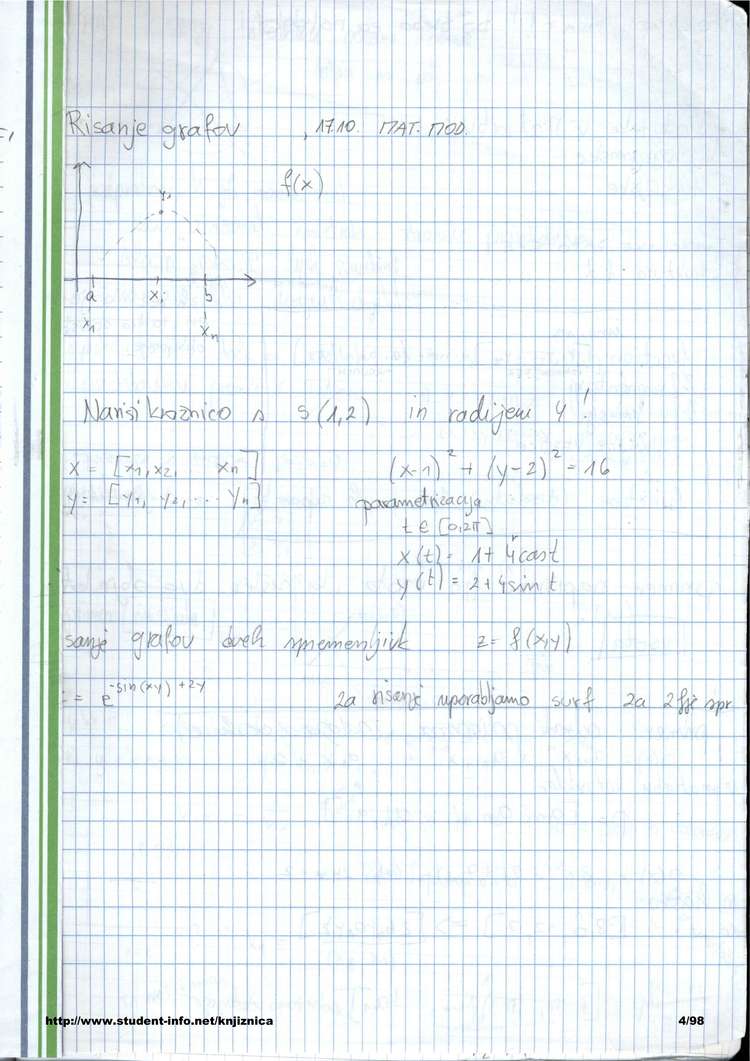 Risanje grafov , 17.10. MAT. ПОD.
f(x)
yi
a xi b
x1 xn
Nariši krožnico s S(1,2) in radijem 4!
x = [x1, x2, xn] (x-1)² + (y-2)² = 16
y = [y1, y2, ... yn] parametrizacija
t ∈ [0,2π]
x(t) = 1 + 4 cos t
y(t) = 2 + 4 sin t
sanje grafov dveh spremenljivk z = f(x,y)
= e^(-sin(xy) + 2y) za risanje uporabljamo surf za 2 fje spr
http://www.student-info.net/knjiznica 4/98